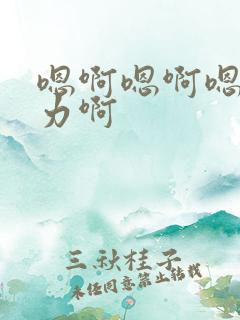 嗯啊嗯啊嗯
力啊
三秋桂子
未经同意禁止转载